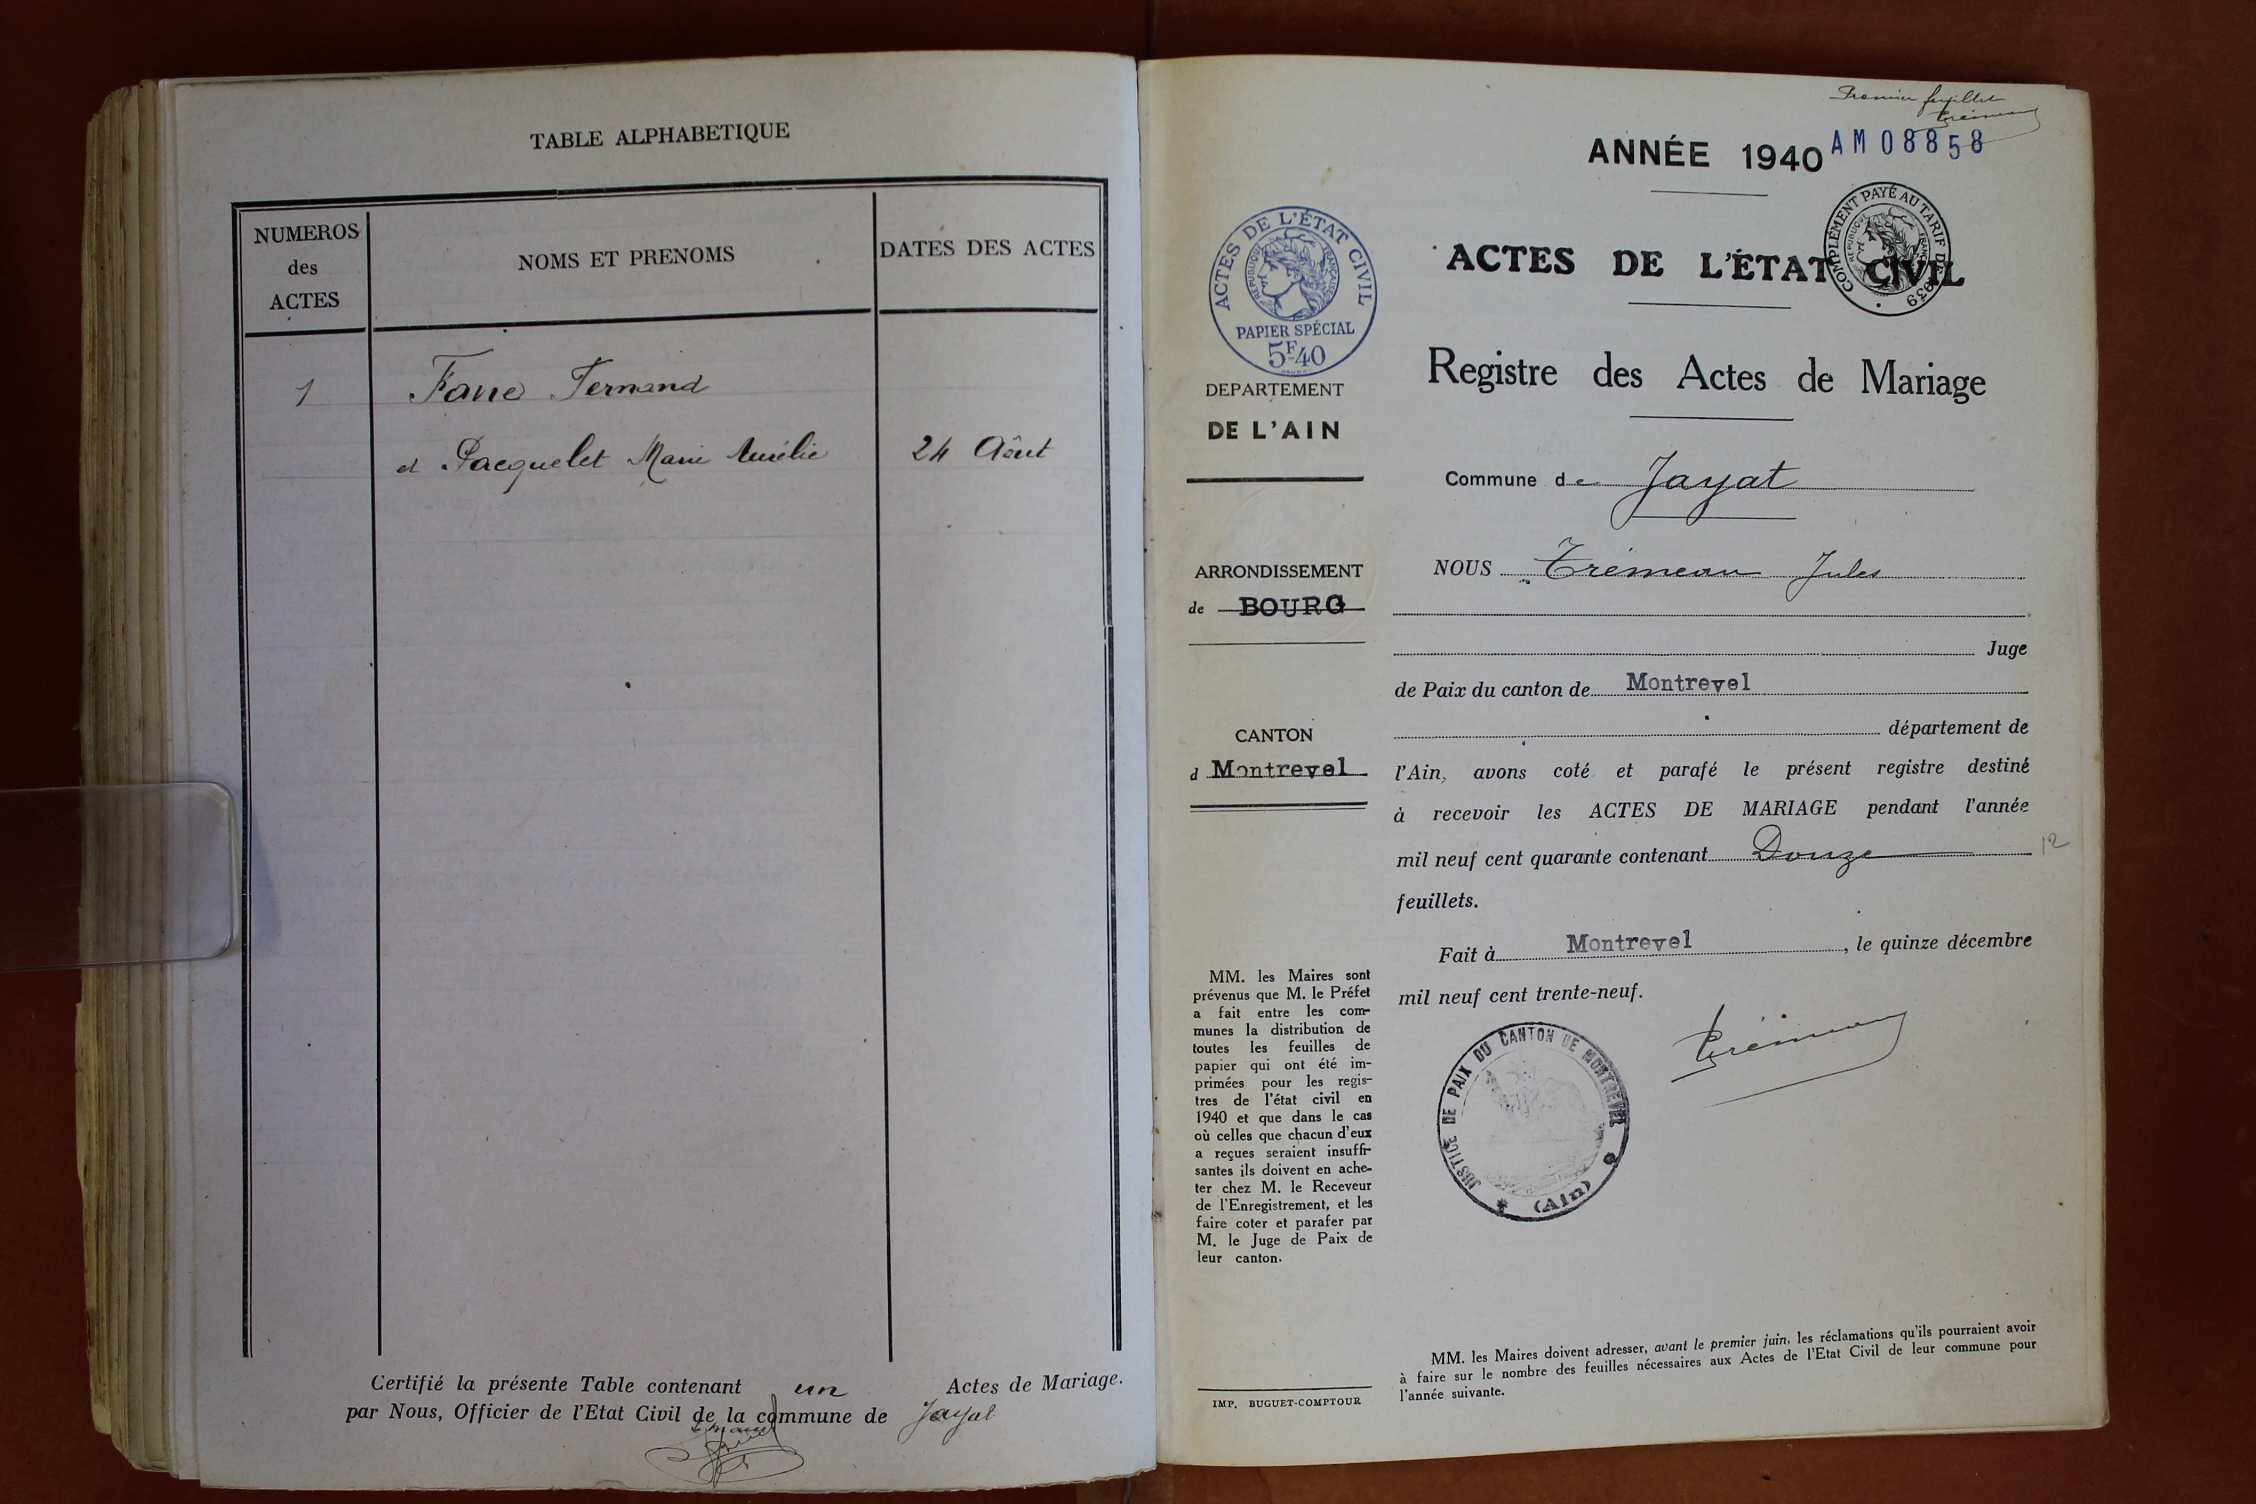 TABLE ALPHABETIQUE
NUMEROS
des
ACTES
NOMS ET PRENOMS
DATES DES ACTES
1
Fernand
et Pacquelet Marie Aurélie
24 Août
Certifié la présente Table contenant un Actes de Mariage.
par Nous, Officier de l'Etat Civil de la commune de Jayat
Premier feuillet
ANNÉE 1940
AM 08858
ACTES DE L'ÉTAT CIVIL
RÉPUBLIQUE FRANÇAISE
PAPIER SPÉCIAL
5F40
COMPLÉMENT PAYÉ AU TARIF DE 1939
RÉPUBLIQUE FRANÇAISE
ACTES DE L'ÉTAT CIVIL
Registre des Actes de Mariage
DEPARTEMENT
DE L'AIN
Commune de Jayat
ARRONDISSEMENT
de BOURG
NOUS Trémeau Jules
Juge
de Paix du canton de Montrevel
département de
CANTON
d Montrevel
l'Ain, avons coté et parafé le présent registre destiné
à recevoir les ACTES DE MARIAGE pendant l'année
mil neuf cent quarante contenant Douze 12
feuillets.
Fait à Montrevel, le quinze décembre
mil neuf cent trente-neuf.
JUSTICE DE PAIX DU CANTON DE MONTREVEL
(Ain)
MM. les Maires sont
prévenus que M. le Préfet
a fait entre les com-
munes la distribution de
toutes les feuilles de
papier qui ont été im-
primées pour les regis-
tres de l'état civil en
1940 et que dans le cas
où celles que chacun d'eux
a reçues seraient insuffi-
santes ils doivent en ache-
ter chez M. le Receveur
de l'Enregistrement, et les
faire coter et parafer par
M. le Juge de Paix de
leur canton.
IMP. BUGUET-COMPTOUR
MM. les Maires doivent adresser, avant le premier juin, les réclamations qu'ils pourraient avoir
à faire sur le nombre des feuilles nécessaires aux Actes de l'Etat Civil de leur commune pour
l'année suivante.